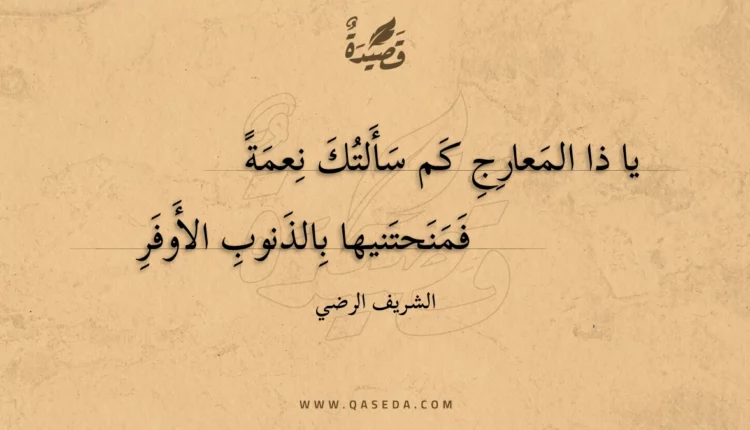 قَصِيدَةٌ
يا ذا المَعارِجِ كَم سَأَلتُكَ نِعمَةً
فَمَنَحتَنيها بِالذَنوبِ الأَوفَرِ
الشريف الرضي
WWW.QASEDA.COM